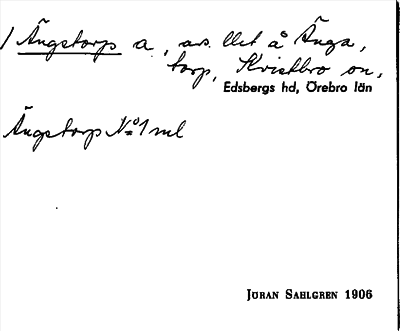 / Ängstorp a., as. Utet å Änga,
torp, Kvistbro sn.
Edsbergs hd, Örebro län
Ängstorp No 1 ml
JÖRAN SAHLGREN 1906